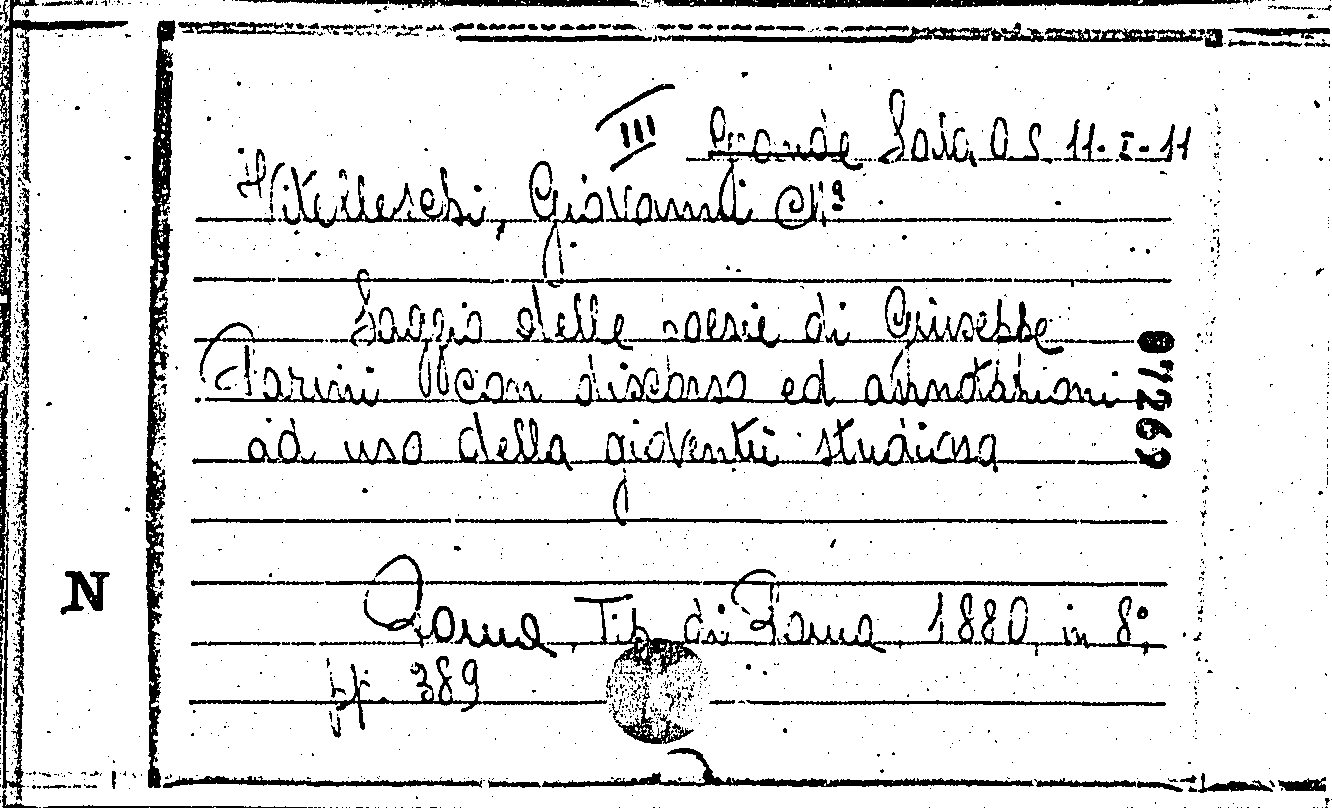 III Grande Sala O. S. 11-I-11
Vitelleschi, Giovanni Mª
Saggio delle poesie di Giuseppe
Parini con discorso ed annotazioni
ad uso della gioventù studiosa
Roma, Tip. di Roma, 1880, in 8º,
pp. 389
07269
N